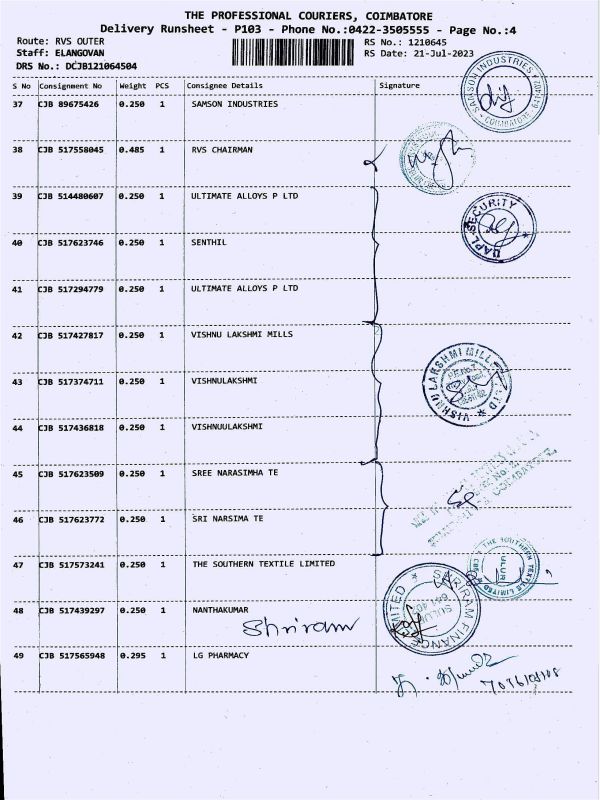 THE PROFESSIONAL COURIERS, COIMBATORE
Delivery Runsheet - P103 - Phone No.:0422-3505555 - Page No.:4
Route: RVS OUTER RS No.: 1210645
Staff: ELANGOVAN RS Date: 21-Jul-2023
DRS No.: DCJB121064504
S No Consignment No Weight PCS Consignee Details Signature
37 CJB 89675426 0.250 1 SAMSON INDUSTRIES
SAMSON INDUSTRIES COIMBATORE
38 CJB 517558045 0.485 1 RVS CHAIRMAN
39 CJB 514480607 0.250 1 ULTIMATE ALLOYS P LTD
UAPL SECURITY
40 CJB 517623746 0.250 1 SENTHIL
41 CJB 517294779 0.250 1 ULTIMATE ALLOYS P LTD
42 CJB 517427817 0.250 1 VISHNU LAKSHMI MILLS
43 CJB 517374711 0.250 1 VISHNULAKSHMI
VISHNU LAKSHMI MILL LTD
44 CJB 517436818 0.250 1 VISHNUULAKSHMI
45 CJB 517623509 0.250 1 SREE NARASIMHA TE
46 CJB 517623772 0.250 1 SRI NARSIMA TE
47 CJB 517573241 0.250 1 THE SOUTHERN TEXTILE LIMITED
THE SOUTHERN TEXTILE LIMITED
48 CJB 517439297 0.250 1 NANTHAKUMAR
Shriram
SHRIRAM FINANCE LIMITED
SULUR
49 CJB 517565948 0.295 1 LG PHARMACY